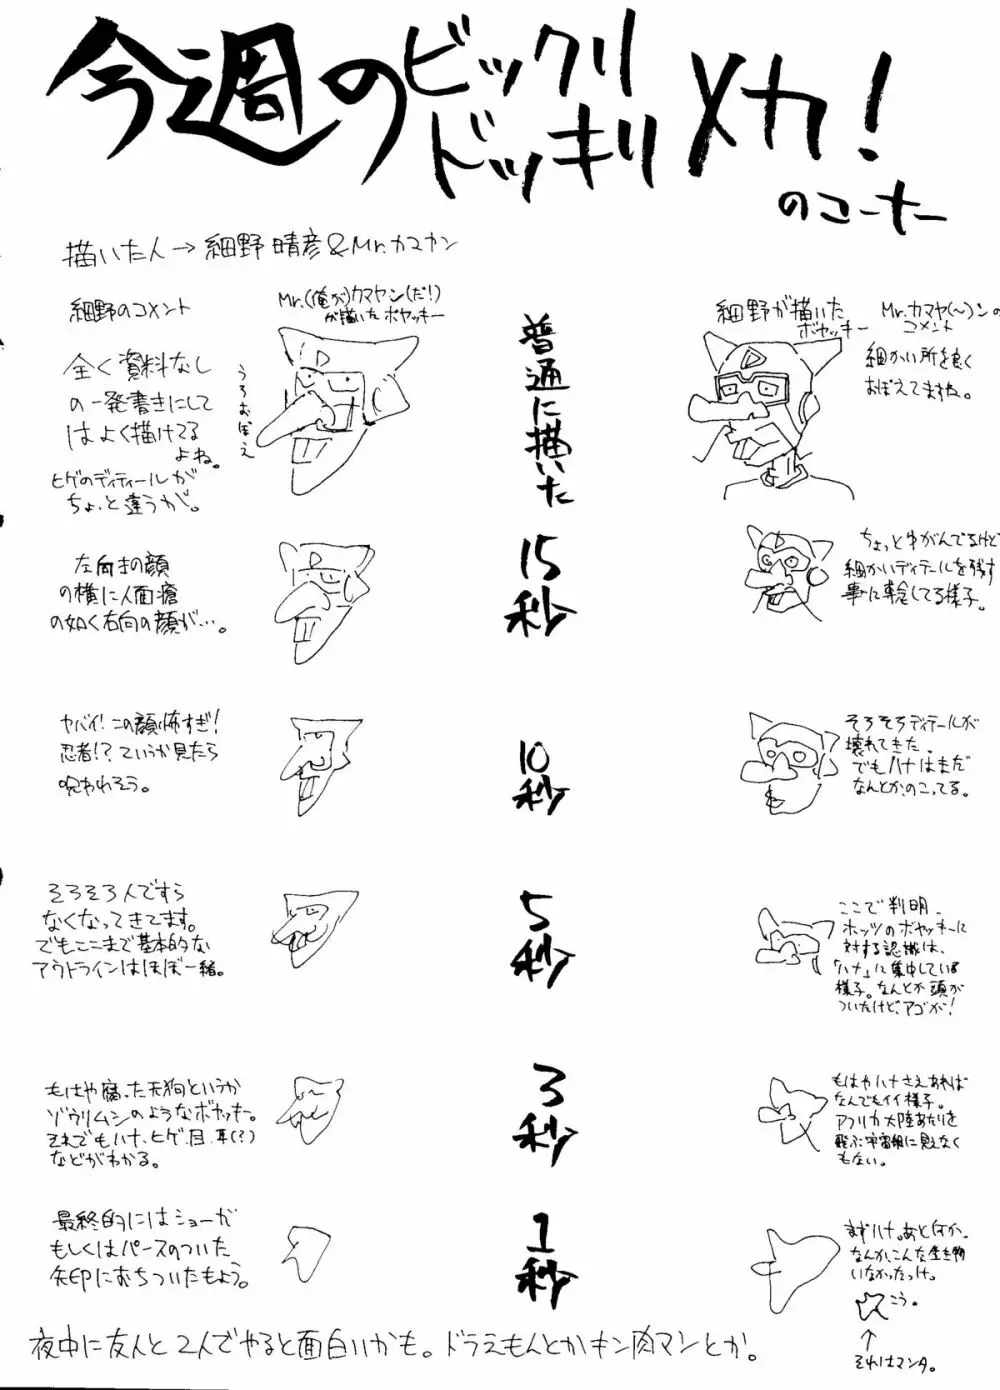 今週のビックリ
ドッキリ
メカ!
のコーナー
描いた人→細野晴彦&Mr.カマヤン
細野のコメント
Mr.(俺が)カマヤン(だ!)
が描いたボヤッキー
うろおぼえ
全く資料なし
の一発書きにして
はよく描けてる
よね。
ヒゲのディティールが
ちょっと違うが。
普通に描いた
細野が描いた
ボヤッキー
Mr.カマヤ(〜)ンの
コメント
細かい所を良く
おぼえてますね。
左向きの顔
の横に人面瘡
の如く右向の顔が…。
15秒
ちょっとゆがんでるけど
細かいディテールを残す
事に専念してる様子。
ヤバイ!この顔怖すぎ!
忍者!?ていうか見たら
呪われそう。
10秒
そろそろディテールが
壊れてきた。
でもハナはまだ
なんとかのこってる。
そろそろ人ですら
なくなってきてます。
でもここまで基本的な
アウトラインはほぼ一緒。
5秒
ここで判明。
ホッツのボヤッキーに
対する認識は、
「ハナ」に集中している
様子。なんとか頭が
ついたけど、アゴが!
もはや腐った天狗というか
ゾウリムシのようなボヤッキー。
それでもハナ、ヒゲ、目、耳(?)
などがわかる。
3秒
もはやハナさえあれば
なんでもイイ様子。
アフリカ大陸あたりを
飛ぶ宇宙船に見えなく
もない。
最終的にはショーガ
もしくはパースのついた
矢印におちついたもよう。
1秒
まずハナ。あと何か。
なんか、こんな生き物
いなかったっけ。
こう。
↑
それはマンタ。
夜中に友人と2人でやると面白いかも。ドラえもんとかキン肉マンとか。